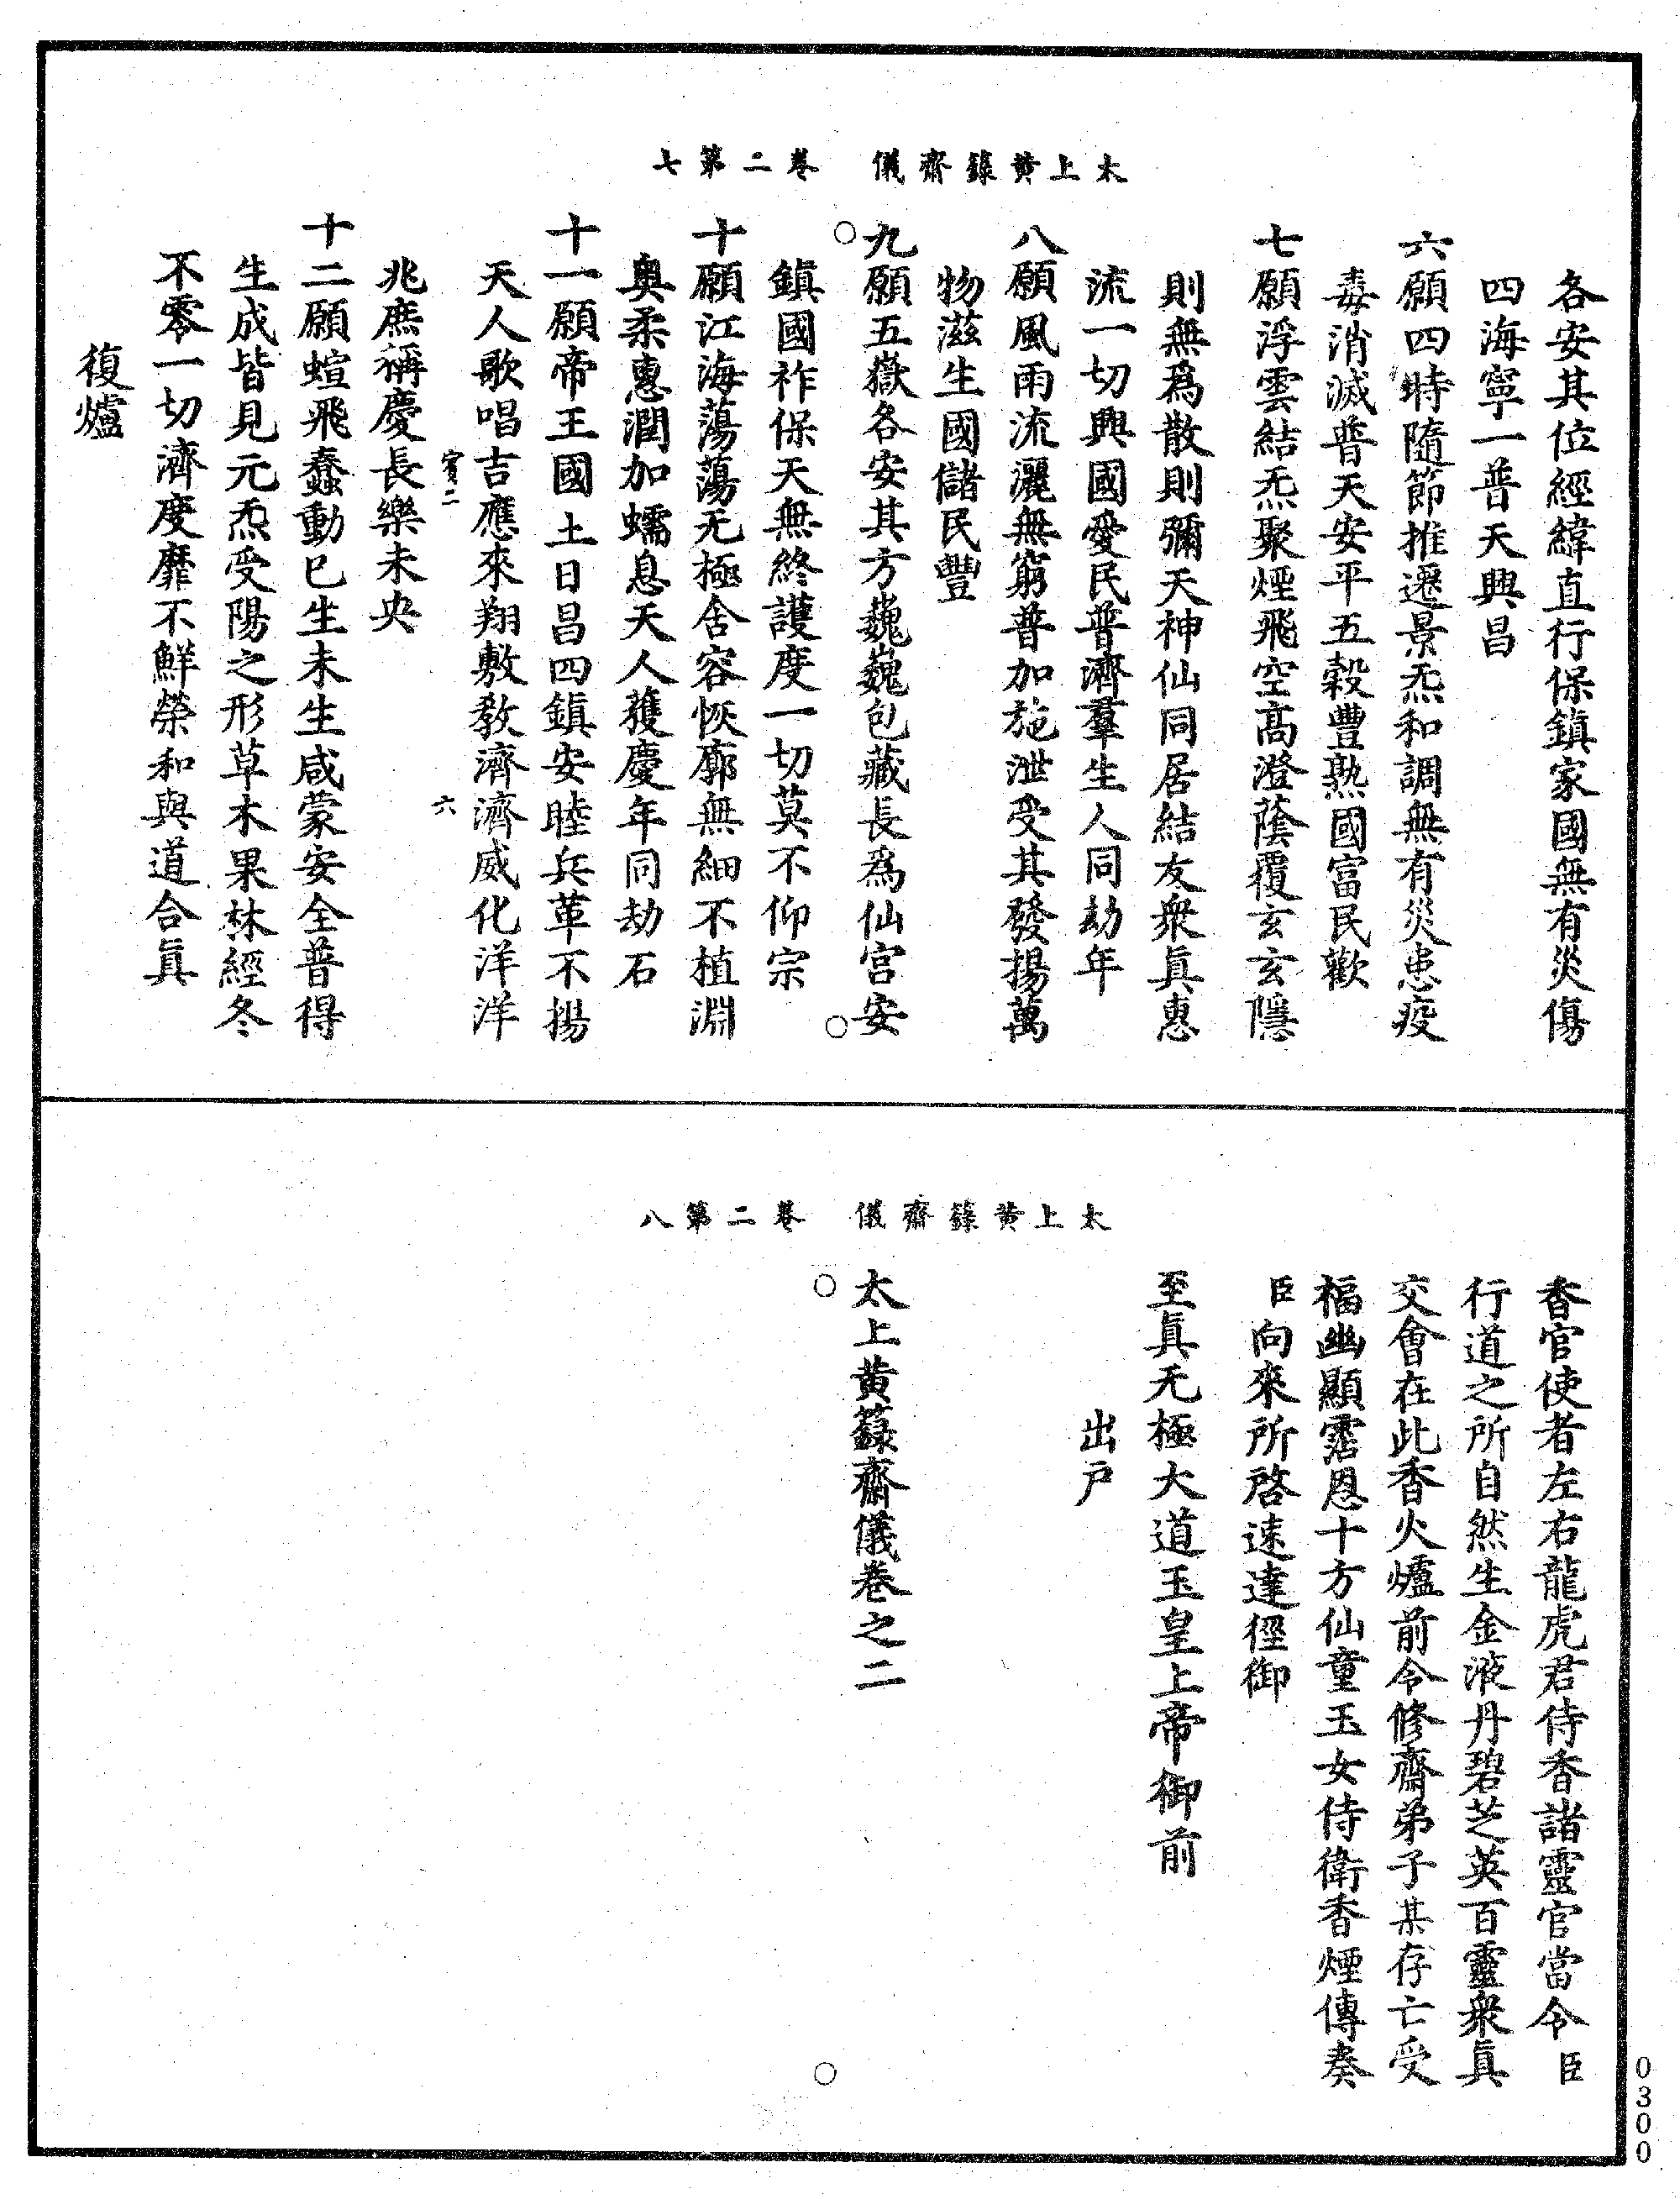 太上黃籙齋儀　卷二第七
各安其位經緯直行保鎮家國無有災傷
四海寧一普天興昌
六願四時隨節推遷景炁和調無有災患疫
毒消滅普天安平五穀豐熟國富民歡
七願浮雲結炁聚煙飛空高澄蔭覆玄玄隱
則無爲散則彌天神仙同居結友衆真惠
流一切興國愛民普濟羣生人同劫年
八願風雨流灑無窮普加施泄受其發揚萬
物滋生國儲民豐
九願五嶽各安其方巍巍包藏長爲仙宮安
鎮國祚保天無終護度一切莫不仰宗
十願江海蕩蕩无極含容恢廓無細不植淵
奧柔惠潤加蠕息天人獲慶年同劫石
十一願帝王國土日昌四鎮安睦兵革不揚
天人歌唱吉應來翔敷教濟濟威化洋洋
賓二　六
兆庶稱慶長樂未央
十二願蝖飛蠢動已生未生咸蒙安全普得
生成皆見元炁受陽之形草木果林經冬
不零一切濟度靡不鮮榮和與道合真
復爐
太上黃籙齋儀　卷二第八
香官使者左右龍虎君侍香諸靈官當令臣
行道之所自然生金液丹碧芝英百靈衆真
交會在此香火爐前令修齋弟子某存亡受
福幽顯霑恩十方仙童玉女侍衛香煙傳奏
臣向來所啓速達徑御
至真无極大道玉皇上帝御前
出戶
太上黃籙齋儀卷之二
0300